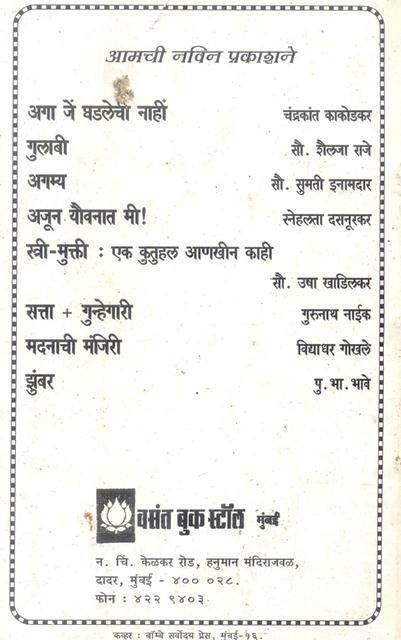 आमची नविन प्रकाशने
अगा जें घडलेची नाहीं चंद्रकांत काकोडकर
गुलाबी सौ. शैलजा राजे
अगम्य सौ. सुमती इनामदार
अजून यौवनात मी! स्नेहलता दसनूरकर
स्त्री-मुक्ती : एक कुतुहल आणखीन काही
सौ. उषा खाडिलकर
सत्ता + गुन्हेगारी गुरुनाथ नाईक
मदनाची मंजिरी विद्याधर गोखले
झुंबर पु.भा.भावे
वसंत बुक स्टॉल मुंबई
न. चिं. केळकर रोड, हनुमान मंदिराजवळ,
दादर, मुंबई - ४०० ०२८.
फोन : ४२२ ९४०३
कव्हर : बॉम्बे सर्वोदय प्रेस, मुंबई-१६.